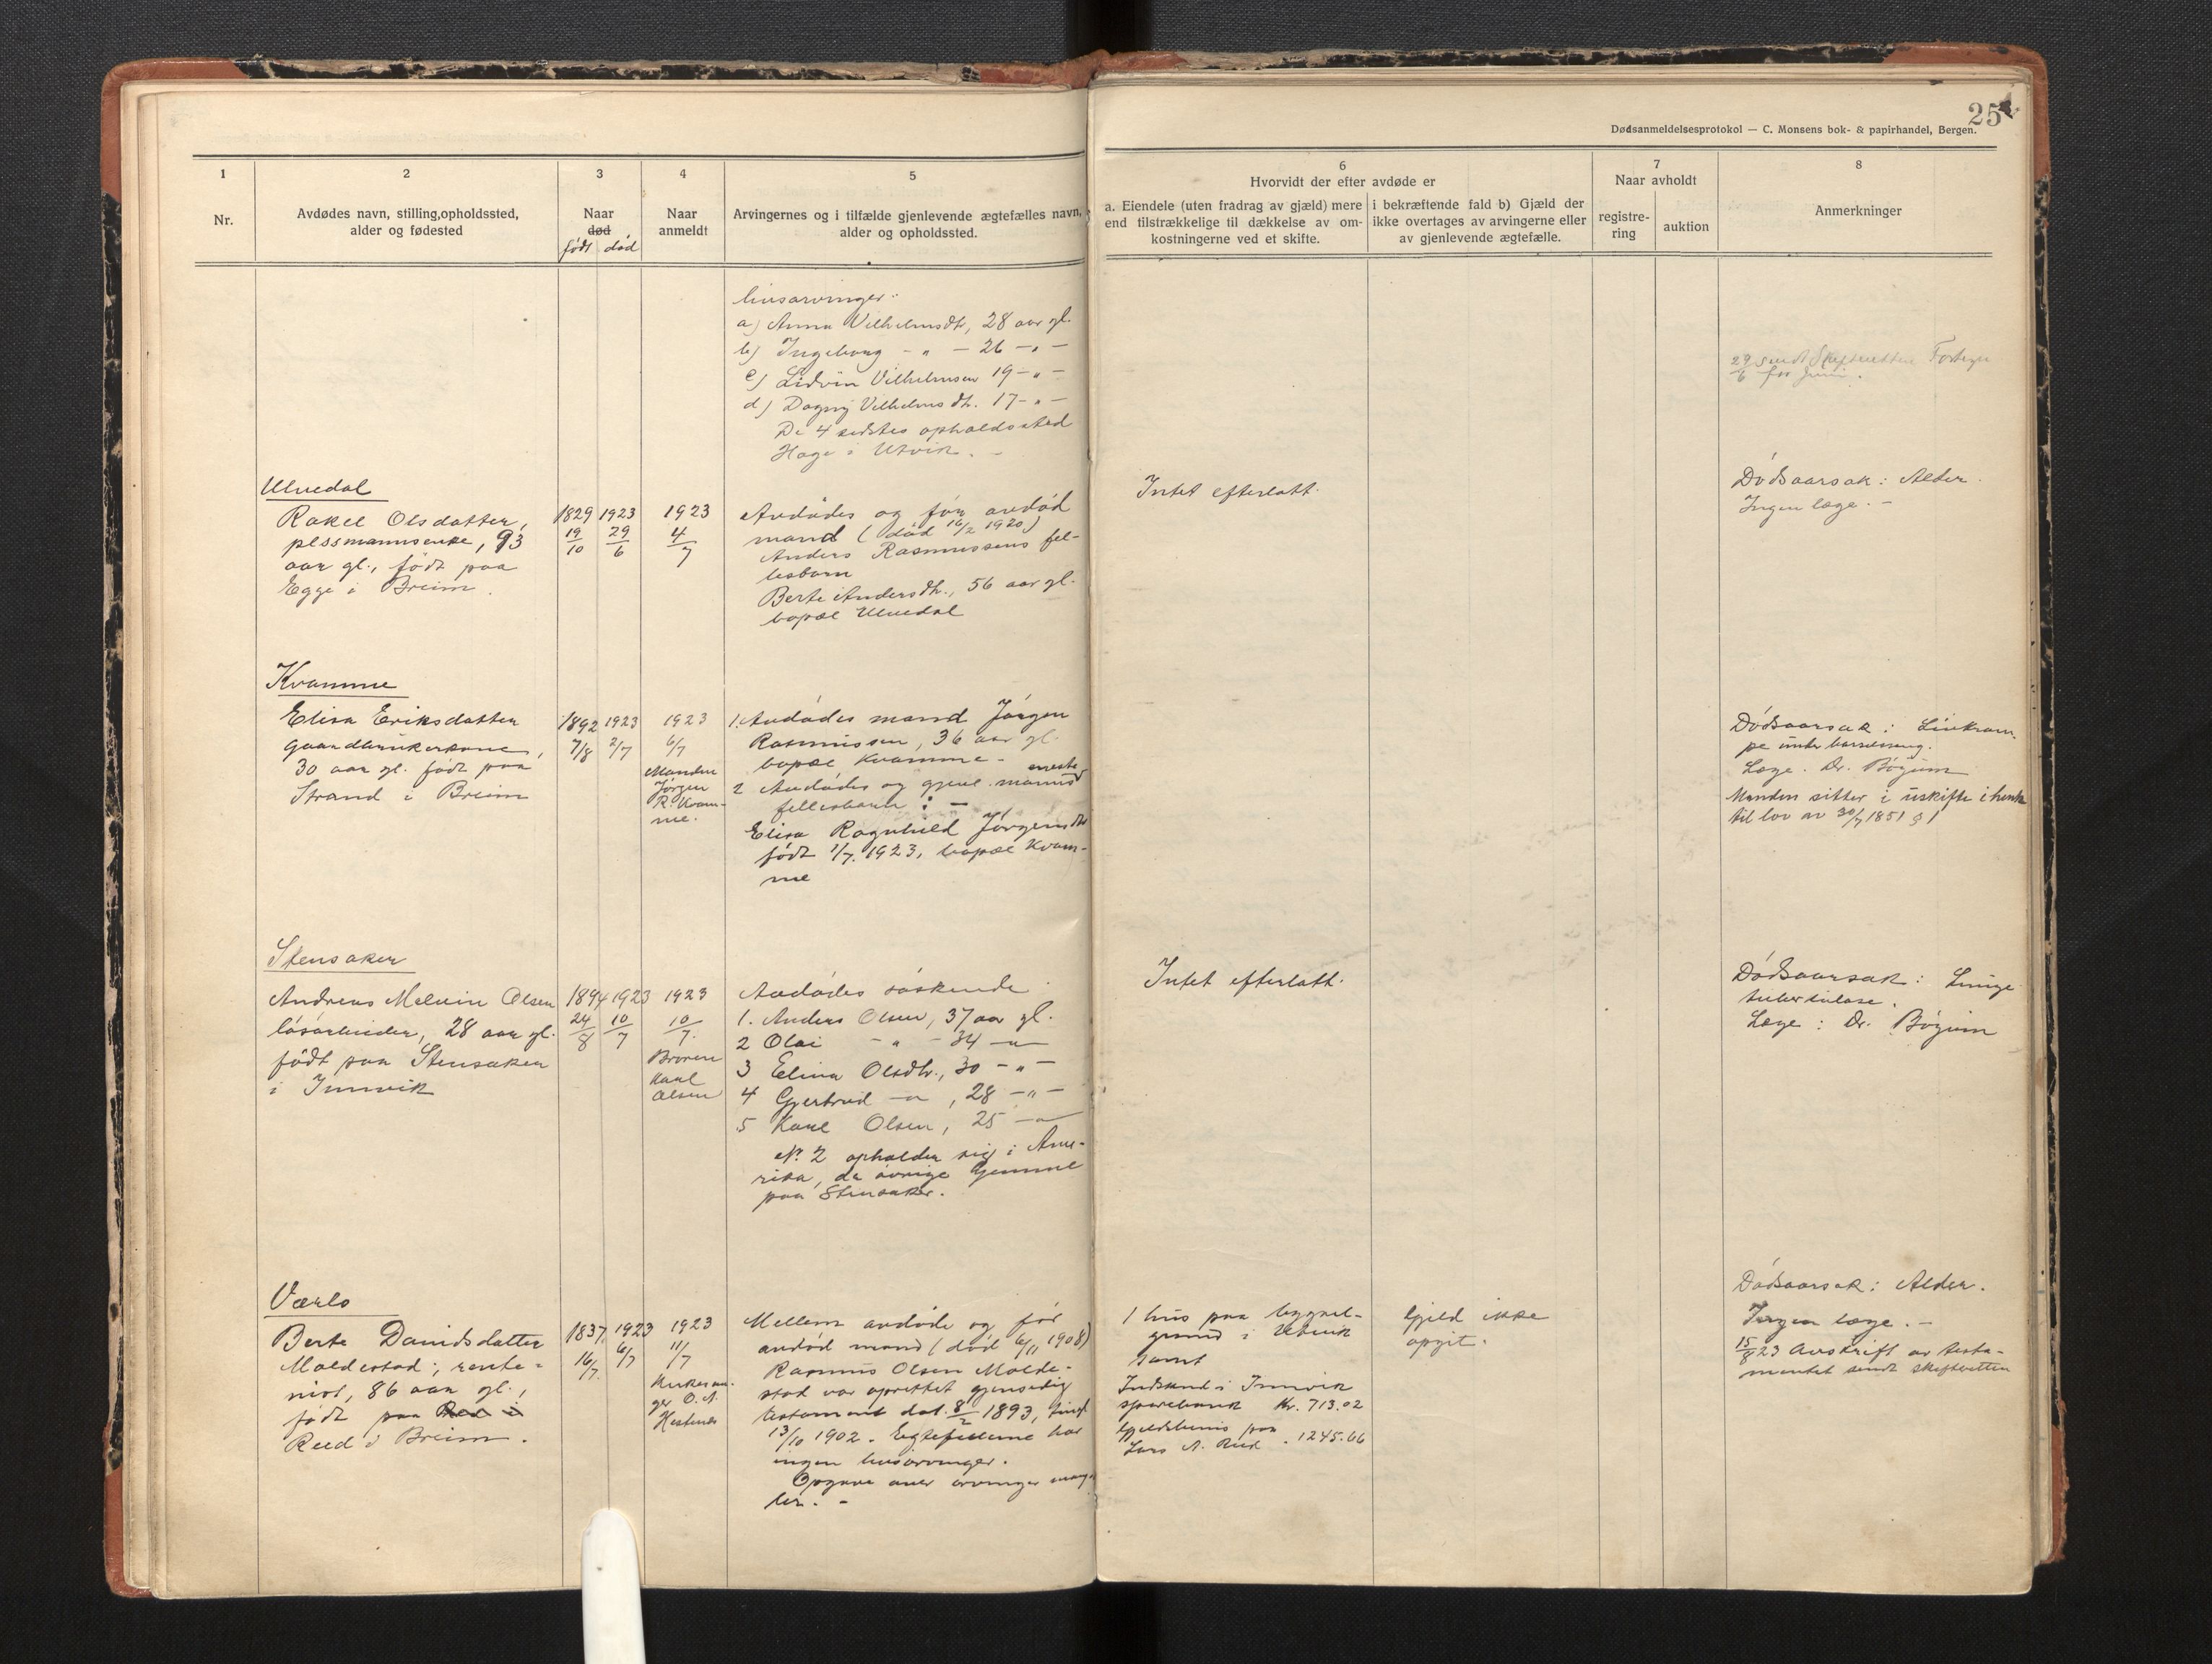 25
Dødsanmeldelsesprotokol — C. Monsens bok- & papirhandel, Bergen.
1
Nr.
2
Avdødes navn, stilling, opholdssted,
alder og fødested
3
Naar
død
født død
4
Naar
anmeldt
5
Arvingernes og i tilfælde gjenlevende ægtefælles navn,
alder og opholdssted.
6
Hvorvidt der efter avdøde er
a. Eiendele (uten fradrag av gjæld) mere
end tilstrækkelige til dækkelse av om-
kostningerne ved et skifte.
i bekræftende fald b) Gjæld der
ikke overtages av arvingerne eller
av gjenlevende ægtefælle.
7
Naar avholdt
registre-
ring
auktion
8
Anmerkninger
livsarvinger:
a) Anna Vilhelmsdtr, 28 aar gl.
b) Ingeborg - " - 26 - " -
c) Lidvin Vilhelmsen 19 - " -
d) Dagny Vilhelmsdtr. 17 - " -
De 4 sidstes opholdssted
Hage i Utvik. -
29/6 sendt Skifteretten Fortegn
for Juni.
Ulvedal
Rakel Olsdatter,
plssmannsenke, 93
aar gl., født paa
Egge i Breim.
1829 19/10
1923 29/6
1923 4/7
Avdødes og før avdød
mand (død 16/2 1920)
Anders Rasmussens fel-
lesbarn
Berte Andersdtr., 56 aar gl.
bopæl Ulvedal
Intet efterlatt.
Dødsaarsak: Alder.
Ingen læge. -
Kvamme
Elisa Eriksdatter
gaardbrukerkone,
30 aar gl. født paa
Strand i Breim
1892 7/8
1923 2/7
1923 6/7
Manden
Jørgen
R. Kvam-
me.
1. Avdødes mand Jørgen
Rasmussen, 36 aar gl.
bopæl Kvamme -
2 Avdødes og gjenl. manns eneste
fellesbarn: -
Elisa Ragnhild Jørgensdtr
født 1/7. 1923, bopæl Kvam-
me
Dødsaarsak: Livkram-
pe under barselseng.
Læge. Dr. Bøgum
Manden sitter i uskifte i henh
til lov av 30/7 1851 § 1
Stensaker
Andreas Melvin Olsen
løsarbeider, 28 aar gl.
født paa Stensaker
i Innvik
1894 24/8
1923 10/7
1923 10/7.
Broren
Karl
Olsen
Avdødes søskende
1. Anders Olsen, 37 aar gl.
2 Olai - " - 34 - " -
3 Elina Olsdtr., 30 - " -
4 Gjertrud - " - , 28 - " -
5 Karl Olsen, 25 - " -
Nº 2 opholder sig i Ame-
rika, de øvrige hjemme
paa Stensaker.
Intet efterlatt.
Dødsaarsak: Lunge
tuberkulose.
Læge: Dr. Bøgum
Værlo
Berte Davidsdatter
Moldestad, rente-
nist, 86 aar gl.,
født paa
Reed i Breim.
1837. 16/7.
1923 6/7
1923 11/7
O. A.
Hestenes
Mellem avdøde og før
avdød mand (død 6/11 1908)
Rasmus Olsen Molde-
stad var oprettet gjensidig
testament dat. 8/2 1893, tingl
13/10 1902. Egtefellerne har
ingen livsarvinger.
Opgave over arvinger mang-
ler. -
1 hus paa bygsel-
grund i Utvik
samt
Indskud i Innvik
sparebank Kr. 713.02
Gjeldsbevis paa
Lars A. Reed - 1245.66
Gjeld ikke
opgit.
Dødsaarsak: Alder.
Ingen læge. -
15/8 23 Avskrift av testa-
mentet sendt skifteretten